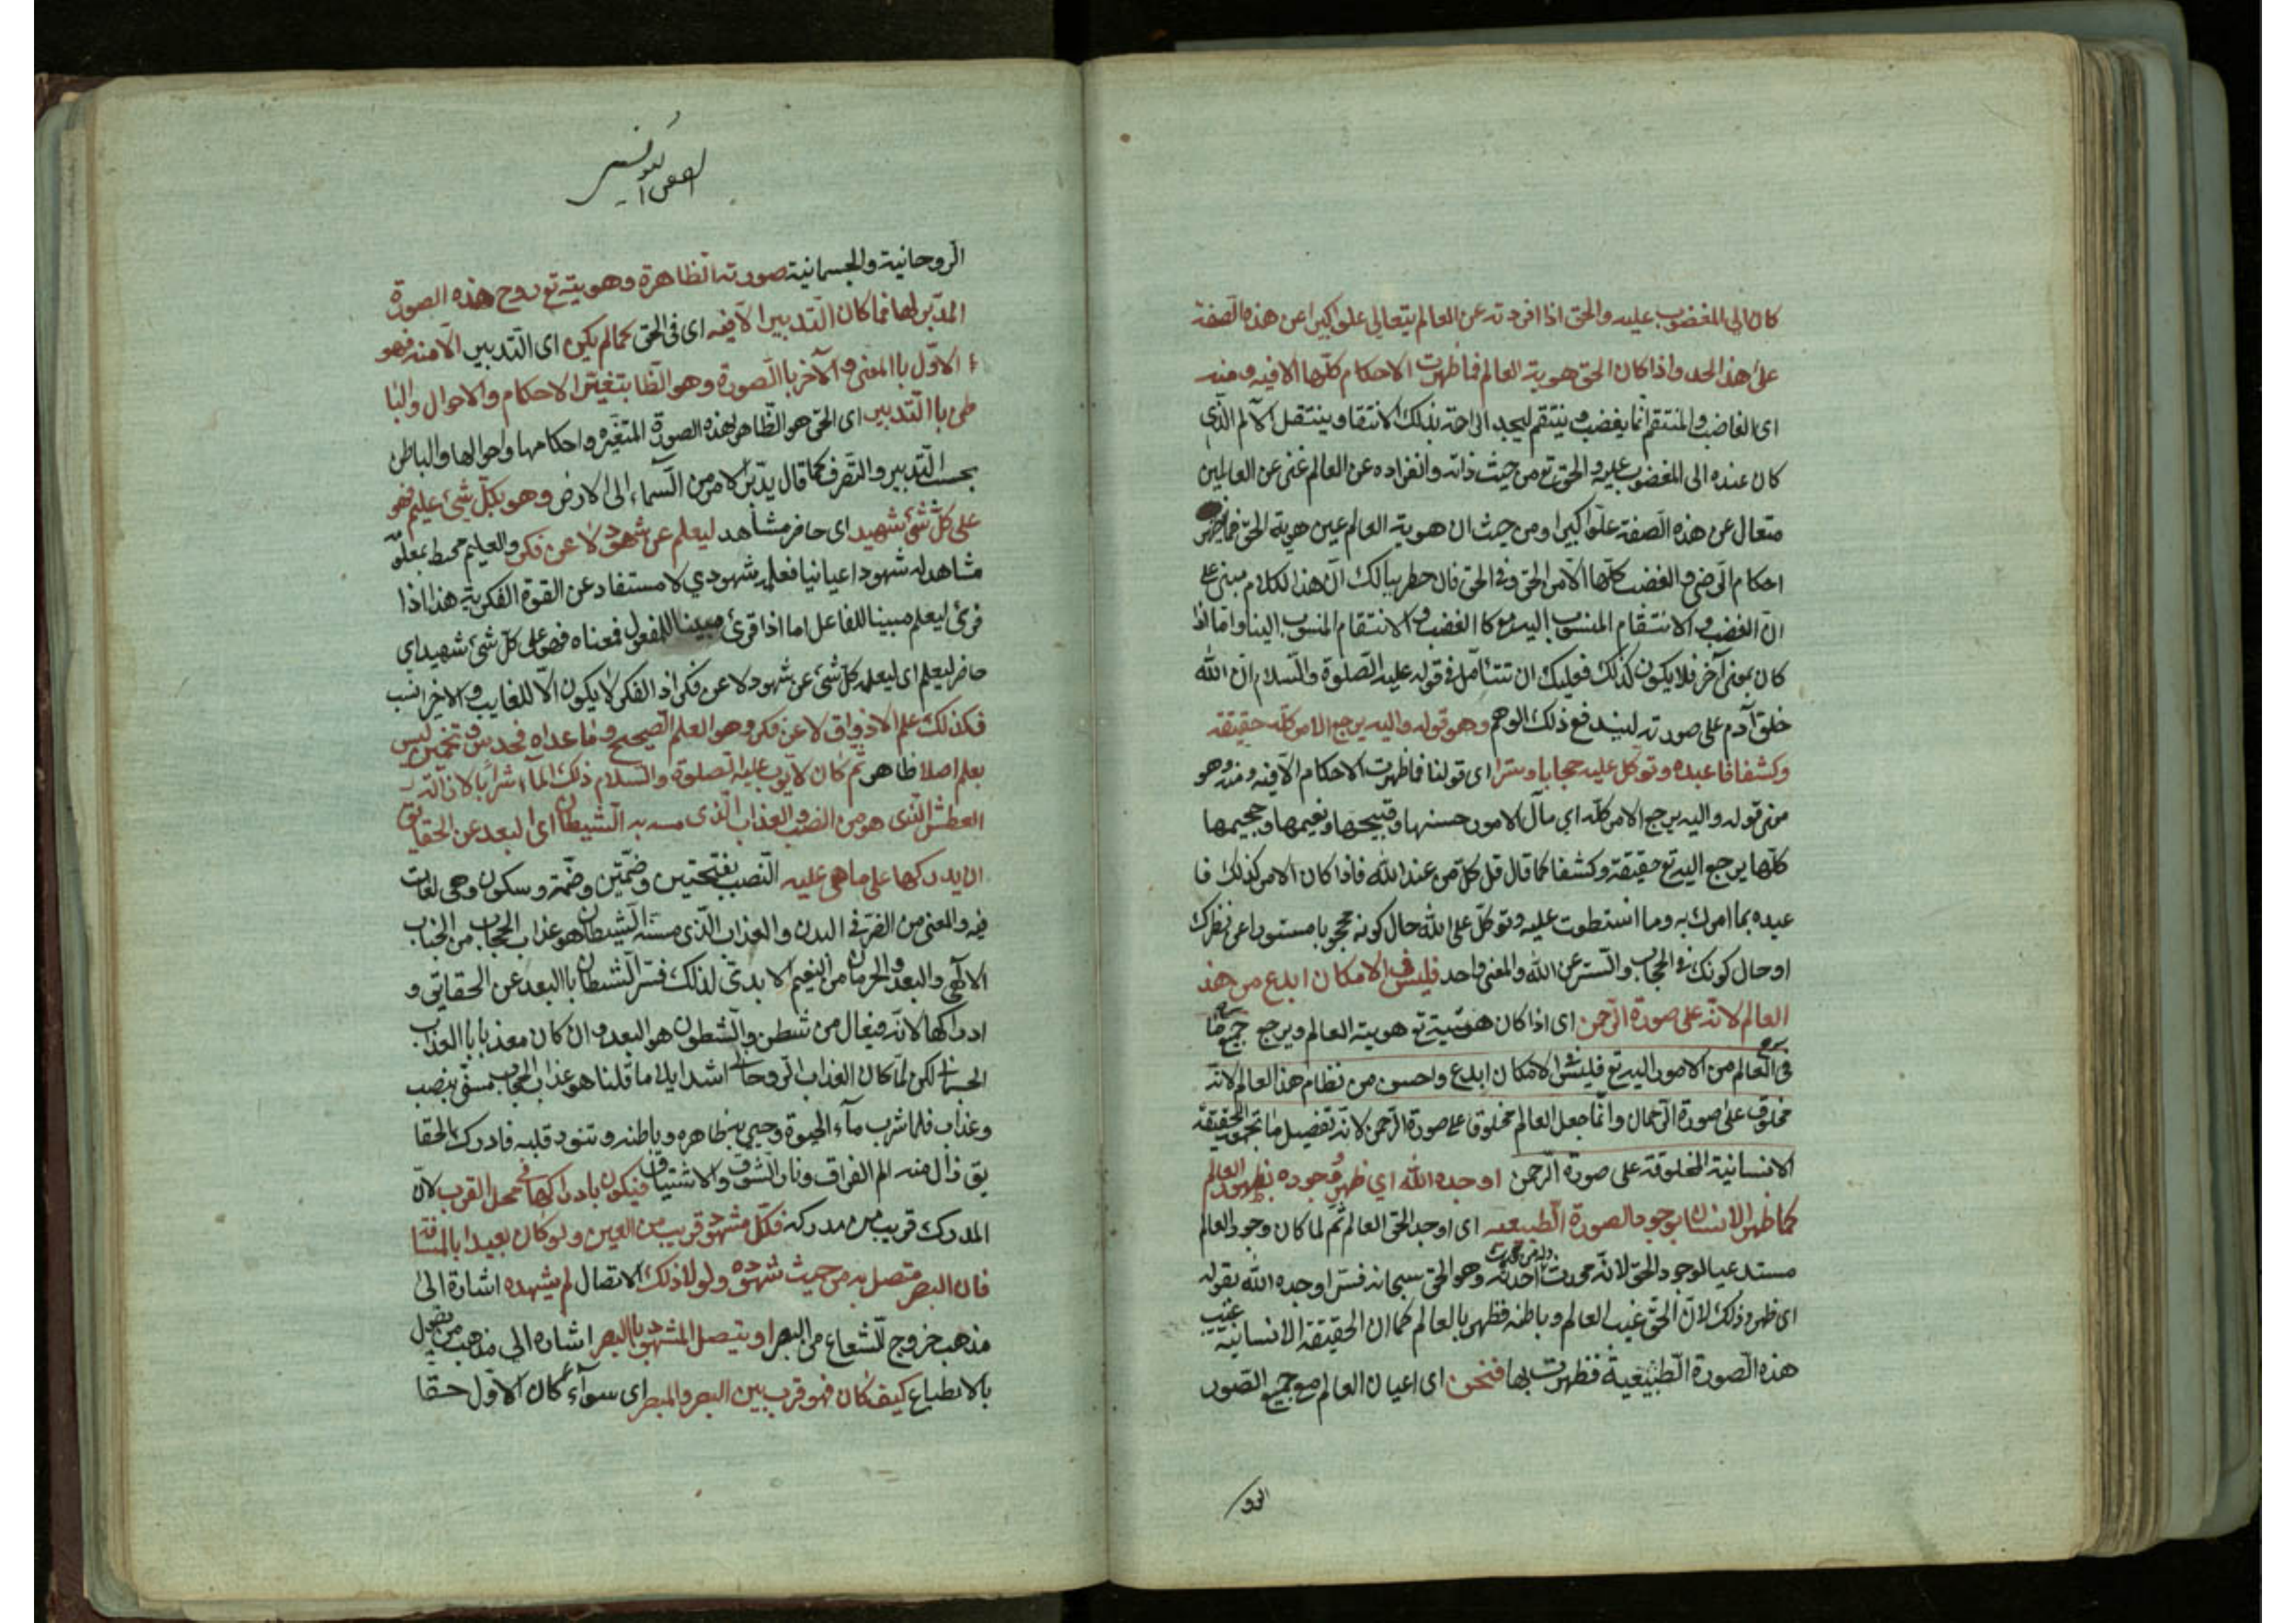 كان الى المغضوب عليه والحق اذا افردته عن العالم يتعالى علوا كبيرا عن هذه الصفة
على هذا الحد واذا كان الحق هوية العالم فما ظهرت الاحكام كلها الا فيه ومنه
اى الغاضب والمنتقم انما يغضب وينتقم ليجد الراحة بذلك الانتقا وينتقل الالم الذى
كان عنده الى المغضوب عليه والحق تع من حيث ذاته وانفراده عن العالم غنى عن العالمين
متعال عن هذه الصفة علوا كبيرا ومن حيث ان هوية العالم عين هوية الحق فما ظهر
احكام الرضى والغضب كلها الا من الحق وفى الحق فان خطر ببالك ان هذا الكلام مبنى على
ان الغضب والانتقام المنسوب اليه تع كالغضب والانتقام المنسوب الينا واما اذا
كان بمعنى آخر فلا يكون كذلك فعليك ان تتأمل فى قوله عليه الصلوة والسلام ان الله
خلق آدم على صورته ليندفع ذلك الوهم وهو قوله واليه يرجع الامر كله حقيقة
وكشفا فاعبده وتوكل عليه حجابا وسترا اى قولنا فما ظهرت الاحكام الا فيه ومنه هو
معنى قوله واليه يرجع الامر كله اي مآل الامور حسنها وقبيحها ونعيمها وجحيمها
كلها يرجع اليه تع حقيقة وكشفا كما قال قل كل من عند الله فاذا كان الامر كذلك فا
عبده بما امرك به وما استطوت عليه وتوكل على الله حال كونه محجوبا مستورا عن نظرك
او حال كونك فى الحجاب والستر عن الله والمعنى واحد فليس فى الامكان ابدع من هذ
العالم لانه على صورة الرحمن اى اذا كان هويته تع هوية العالم ويرجع جميع ما
فى العالم من الامور اليه تع فليس فى الامكان ابدع واحسن من نظام هذا العالم لانه
مخلوق على صورة الرحمان وانما جعل العالم مخلوقا على صورة الرحمن لانه تفضيل ما تجمعه الحقيقة
الانسانية المخلوقة على صورة الرحمن اوجده الله اي ظهر وجوده بظهور العالم
كما ظهر الانسان بوجود الصورة الطبيعيه اى اوجد الحق العالم ثم لما كان وجود العالم
مستدعيا لوجود الحق لانه محدث احدثه وهو الحق سبحانه فسر اوجده الله بقوله
اى ظهر وذلك لان الحق غيب العالم وباطنه فظهر بالعالم كما ان الحقيقة الانسانية غيب
هذه الصورة الطبيعية فظهرت بها فنحن اى اعيان العالم مع جميع الصور
الرو
الروحانية والجسمانية صورته الظاهرة وهويته تع روح هذه الصورة
المدبر لها فما كان التدبير الا فيه اى فى الحق كما لم يكن اى التدبير الا منه فهو
الاول باالمعنى والآخر باالصورة وهو الظا بتغير الاحكام والاحوال والبا
طن باالتدبير اى الحق هو الظاهر بهذه الصورة المتغيره واحكامها واحوالها والباطن
بحسب التدبير والتصرف كما قال يدبر الامر من السماء الى الارض وهو بكل شئ عليم فهو
على كل شئ شهيد اى حاضر مشاهد ليعلم عن شهود لا عن فكر والعليم محيط بمعلو
مشاهد له شهودا عيانيا فعلمه شهودي لا مستفاد عن القوة الفكرية هذا اذا
قرئ ليعلم مبينا للفاعل اما اذا قرئ مبينا للمفعول فمعناه فهو على كل شئ شهيد اى
حاضر ليعلم اى ليعلمه كل شئ عن شهود لا عن فكر اذ الفكر لا يكون الا للغايب والاخير انسب
فكذلك علم الاذواق لا عن فكر وهو العلم الصحيح وما عداه فحدس وتخمين ليس
بعلم اصلا ظاهر ثم كان لايوب عليه الصلوة والسلام ذلك المآء شرابا لازالة
العطش الذى هو من النصب والعذاب الذى مسه به الشيطان اى البعد عن الحقايق
ان يدركها على ما هى عليه النصب بفتحتين وضمتين وضمة وسكون وهى لغات
فيه والمعنى من الضر فى البدن والعذاب الذى مسه الشيطان هو عذاب الحجاب من الجناب
الالهى والبعد والحرمان من النعيم الابدى لذلك فسر الشيطان باالبعد عن الحقايق و
ادراكها لانه فيعال من شطن والشطون هو البعد وان كان معذبا باالعذاب
الجسمانى لكن لما كان العذاب الروحانى اشد ايلاما قلنا هو عذاب الحجاب مسمى بنصب
وعذاب فلما شرب مآء الحيوة وحيى به ظاهره وباطنه وتنور قلبه فادرك الحقا
يق زال منه الم الفراق ونار الشوق والاشتياق فيكون بادراكها فى محل القرب لان
المدرك قريب من مدركه فكل مشهود قريب من العين ولو كان بعيدا بالمسافة
فان البصر متصل به من حيث شهوده ولولا ذلك الاتصال لم يشهده اشارة الى
مذهب خروج الشعاع من البصر او يتصل المشهود باالبصر اشاره الى مذهب من يقول
بالانطباع كيف كان فهو قرب بين البصر والمبصر اى سوآء كان الاول حقا